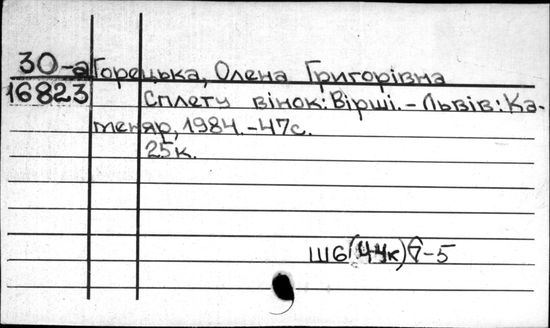 30-а Горецька, Олена Григорівна
16823 Сплету вінок: Вірші. - Львів: Ка-
меняр, 1984. - 47с.
25к.
Ш6(44к)7-5